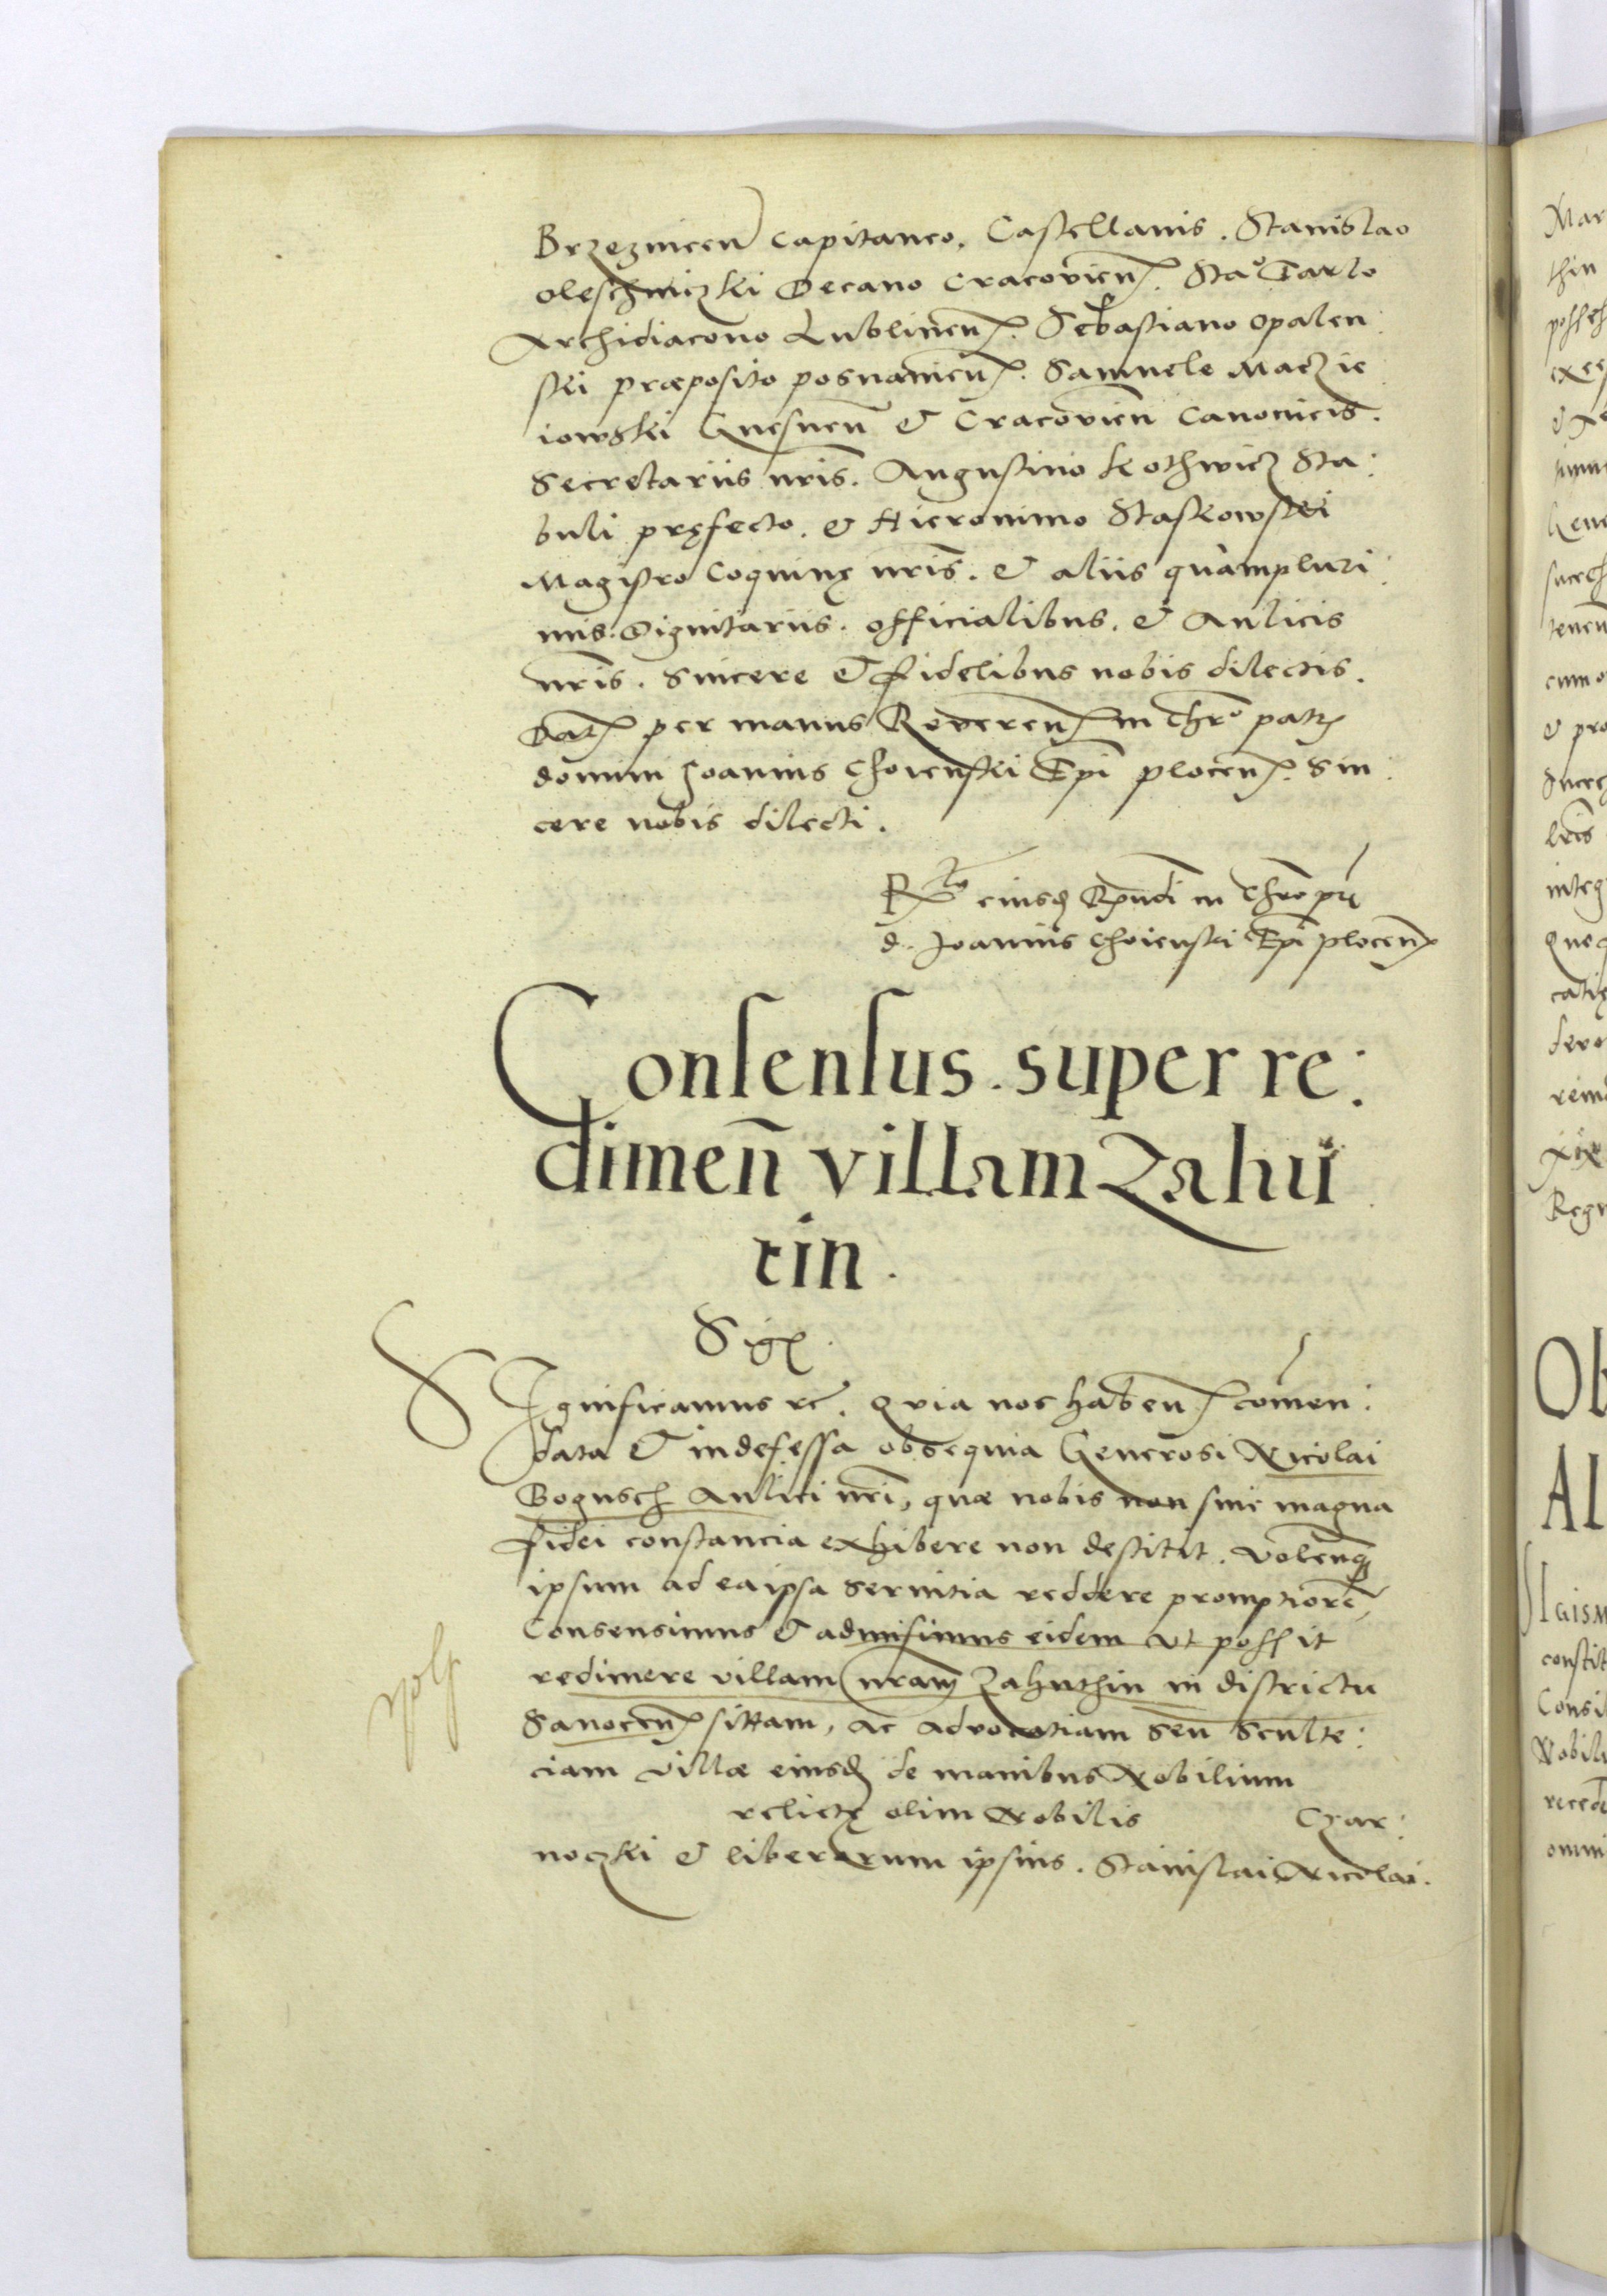 Brzeznicen Capitaneo. Castellanis. Stanislao
Oleschniczki Decano Cracovien. Sta° Tarlo
Archidiacono Lublinen. Sebastiano Opalen:
ski præposito posnanien. Samuele Maczie
iowski Gnesnen̄ & Cracovien̄ Canonicis.
Secretariis nr̄is. Augustino Kothwicz Sta:
buli pręfecto. & Hieronimo Staskowski
Magistro Coquinę nr̄is. & aliis quàmpluri:
mis. Dignitariis. officialibus. & Aulicis
nr̄is. Sincere & fidelibus nobis dilectis.
Dat per manus Reveren in Chr̄o patr
domini Joannis Choienski Ep̄i plocen. Sin:
cere nobis dilecti.
Rtio eiusd Rn̄di in Chr̄o pr̄
d. Joannis Choienski Ep̄i plocen
Consensus. super re:
dimen̄ villam Zahu
tin.
Sig.
Significamus rc. Quia nos haben com̄en:
data & indefessa obsequia Generosi Nicolai
Bogusch Aulici nr̄i, quæ nobis non sine magna
fidei constancia exhibere non destitit. Volenq
ipsum ad ea ipsa servitia reddere promptiorē,
Consensimus & admisimus eidem ut possit
redimere villam nr̄am Zahuthin in districtu
Sanocen sittam, ac advocatiam seu Sculte:
ciam villæ eiusd de manibus Nobilium
relictę olim Nobilis Czar:
noczki & liberorum ipsius. Stanislai Nicolai.